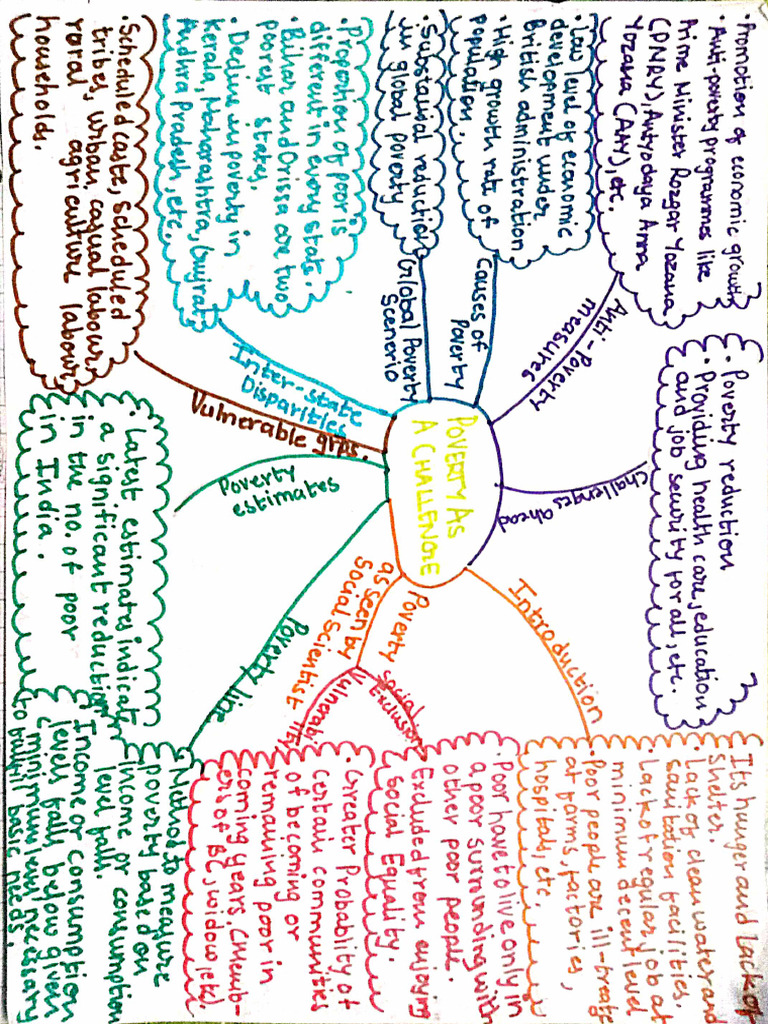 POVERTY AS
A CHALLENGE
Introduction
Its hunger and lack of
shelter.
Lack of clean water and
sanitation facilities.
Lack of regular job at
minimum decent level
Poor people are ill-treate
at farms, factories,
hospitals, etc.
Poverty
as seen by
Social scientist
Social
Exclusion
Poor have to live only in
a poor surrounding with
other poor people.
Excluded from enjoying
Social Equality.
Vulnerabi
lity
Greater Probablity of
Certain communities
of becoming or
remaining poor in
coming years, (Memb-
ers of BC, widow, etc).
Poverty line
Method to measure
poverty based on
income or consumption
level falls.
Income or Consumption
level falls below given
minimum level necessary
to fulfill basic needs.
Poverty
estimates
• Latest estimates indicat
a significant reduction
in the no. of poor
in India.
Vulnerable grps.
• Scheduled caste, Scheduled
tribes, urban, casual labour
rural agriculture labour
households.
Inter-state
Disparities
• Proportion of poor is
different in every state.
• Bihar and Orissa are two
poorest states.
• Decline in poverty in
Kerala, Maharashtra, Gujrat
Andhra Pradesh, etc
Global Poverty
Scenerio
• Substancial reduction
in global poverty
Causes of
Poverty
• Low level of economic
development under
British administration
• High growth rate of
population.
Anti-Poverty
measures
• Promotion of economic growth
• Anti-poverty programmes like
Prime Minister Rozgar Yozana
(PMRY), Antyodaya Anna
Yozana (AAY), etc.
Challenges Ahead
• Poverty reduction
• Providing health care, education
and job security for all, etc.